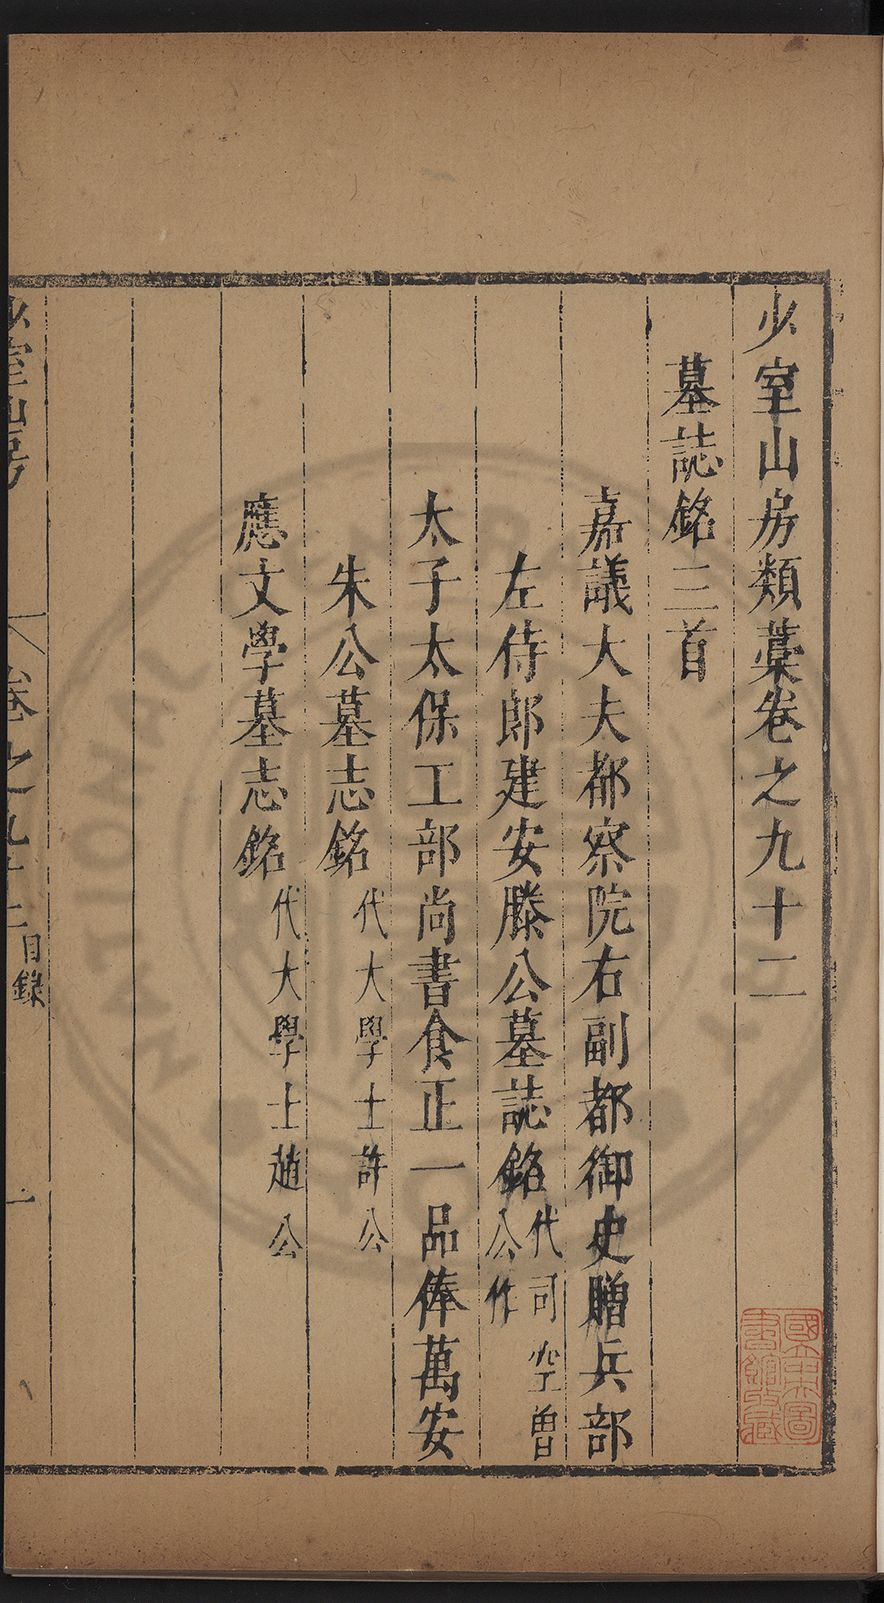 少室山房類藁卷之九十二
墓誌銘三首
嘉議大夫都察院右副都御史贈兵部
左侍郎建安滕公墓誌銘代司空曾公作
太子太保工部尚書食正一品俸萬安
朱公墓志銘代大學士許公
應文學墓志銘代大學士趙公
少室山房
卷之九十二 目錄 一